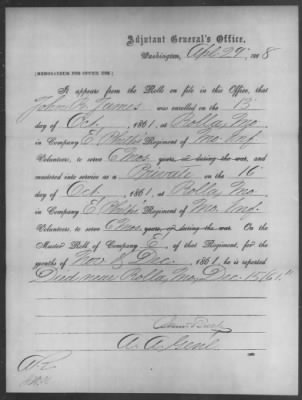 Adjutant General's Office,
Washington, Apl. 29", 1868
[MEMORANDUM FOR OFFICE USE]
It appears from the Rolls on file in this Office, that
John James was enrolled on the 13"
day of Oct, 1861, at Rolla, Mo
in Company E, Phelps' Regiment of Mo. Inf.
Volunteers, to serve 6 Mos. years, or during the war, and
mustered into service as a Private on the 16"
day of Oct, 1861, at Rolla, Mo
in Company E, Phelps' Regiment of Mo. Inf.
Volunteers, to serve 6 Mos. years, or during the war. On the
Muster Roll of Company E, of that Regiment, for the
months of Nov & Dec, 1861, he is reported
Died near Rolla, Mo, Dec. 15/61."
A. A. Genl.